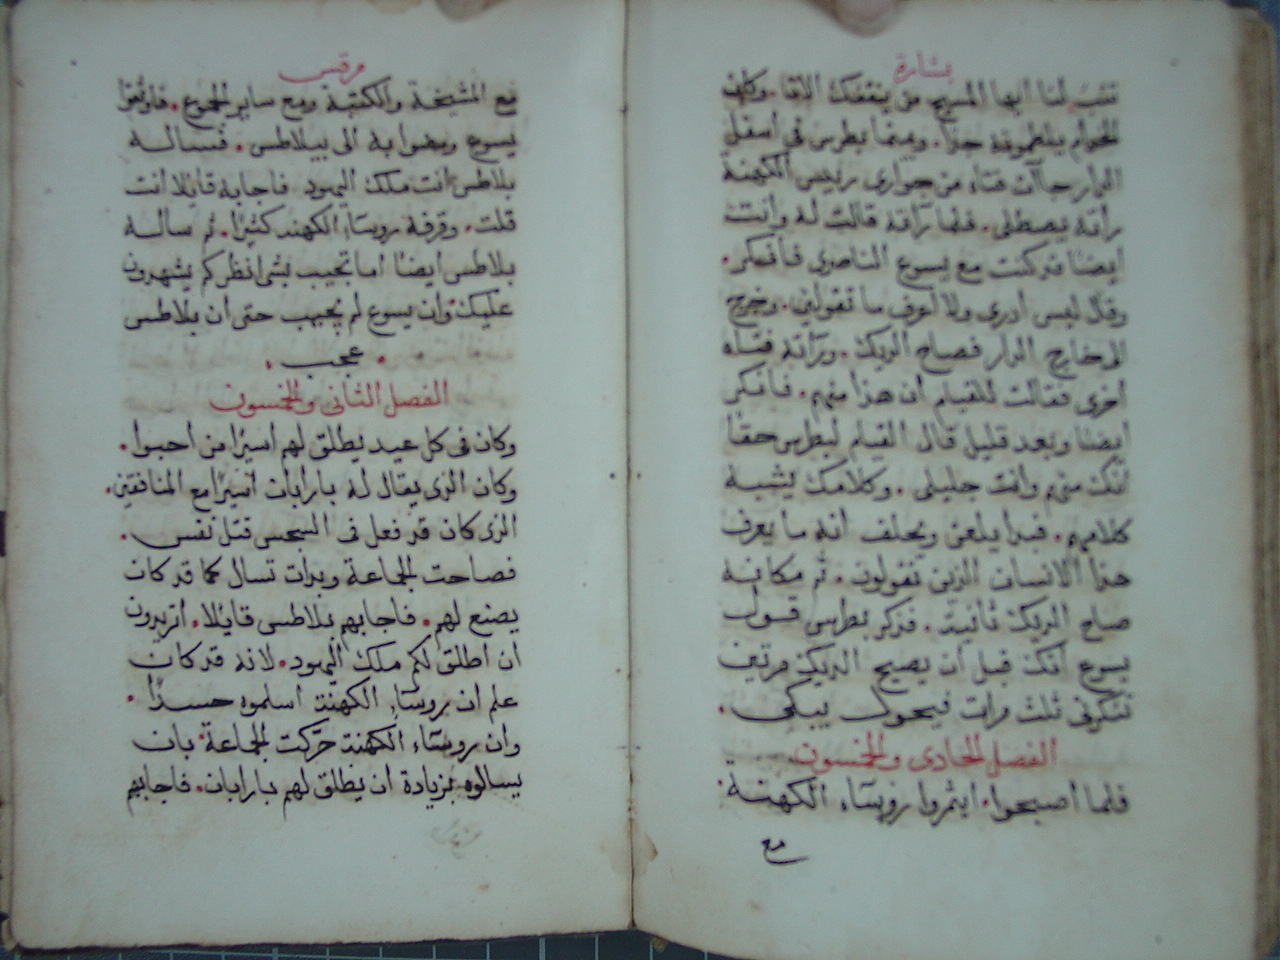 بشارة
تنبَ لنا ايها المسيح من يتقفك الاقا. وكان
الخدام يلطمونه جدا. وبينما بطرس في اسفل
الدار جاآت فتاه من جواري رئيس الكهنة
رأته يصطلي. فلما رآته قالت له وانت
ايضًا قد كنت مع يسوع الناصري فانكر.
وقال ليس ادري ولا اعرف ما تقولين. وخرج
الى خارج الدار فصاح الديك. ورآته فتاه
اخرى فقالت للقيام ان هذا منهم. فانكر
ايضًا وبعد قليل قال القيام لبطرس حقًا
انك منهم وانت جليلي. وكلامك يشبه
كلامهم. فبدا يلعن ويحلف انه ما يعرف
هذا الانسان الذين تقولون. ثم مكانه
صاح الديك ثانية. فذكر بطرس قول
يسوع انك قبل ان يصيح الديك مرتين
تنكرني ثلث مرات فيحوك يبكي.
الفصل الحادي والخمسون
فلما اصبحوا. ايتمروا روسآء الكهنة.
مع
مرقس
مع المشيخة والكتبة ومع ساير الجموع. فاوثقوا
يسوع ومضوا به الى بيلاطس. فساله
بلاطس انت ملك اليهود فاجابه قايلا انت
قلت. وقرفه روسآء الكهند كثيرًا. ثم ساله
بلاطس ايضًا اما تجيب بشي انظركم يشهدون
عليك. وان يسوع لم يجيب حتى ان بلاطس
. عجب.
الفصل الثاني والخمسون
وكان في كل عيد يطلق لهم اسيرًا من احبوا.
وكان الذي يقال له بارابان اسيرًا مع المنافقين.
الذي كان قد فعل في السجس قتل نفس.
فصاحت الجماعة وبدات تسال كما قد كان
يصنع لهم. فاجابهم بلاطس قايلا. اتريدون
ان اطلق لكم ملك اليهود. لانه قد كان
علم ان روسآء الكهنة اسلموه حسدًا.
وان روسآء الكهنة حرّكت الجماعة. بان
يسالوه بزيادة ان يطلق لهم بارابان. فاجابهم